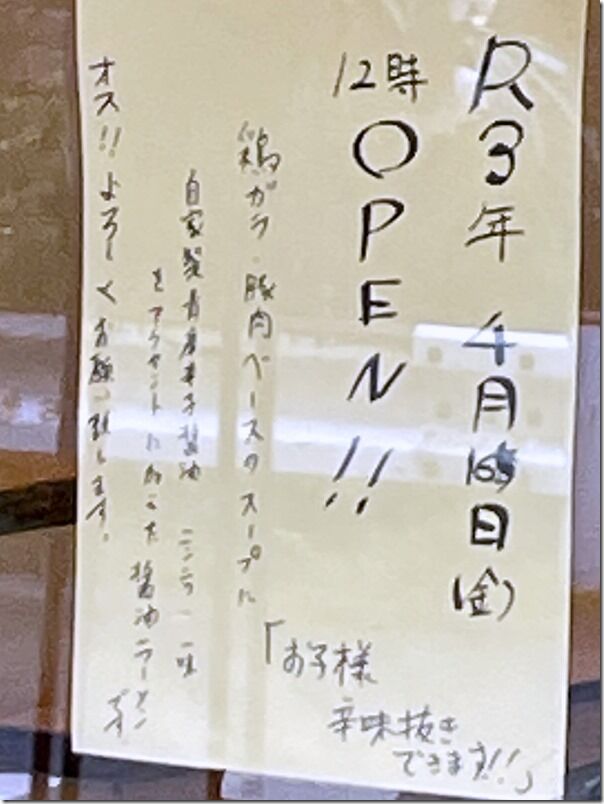 R3年 4月16日(金)
12時 OPEN!!
鶏ガラ・豚肉ベースのスープに
自家製青唐辛子醤油 ニンニク 一味
をアクセントにおいた醤油ラーメンです
オス!! よろしくお願い致します。
「お子様
辛味抜き
できます!!」